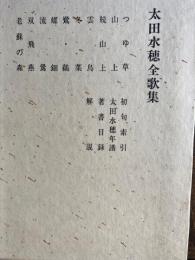 太田水穂全歌集
つゆ草
山上
続山上
雲鳥
冬菜
鷺・鵜
螺鈿
流鶯
双飛燕
老蘇の森
初句索引
太田水穂年譜
著書目録
解説